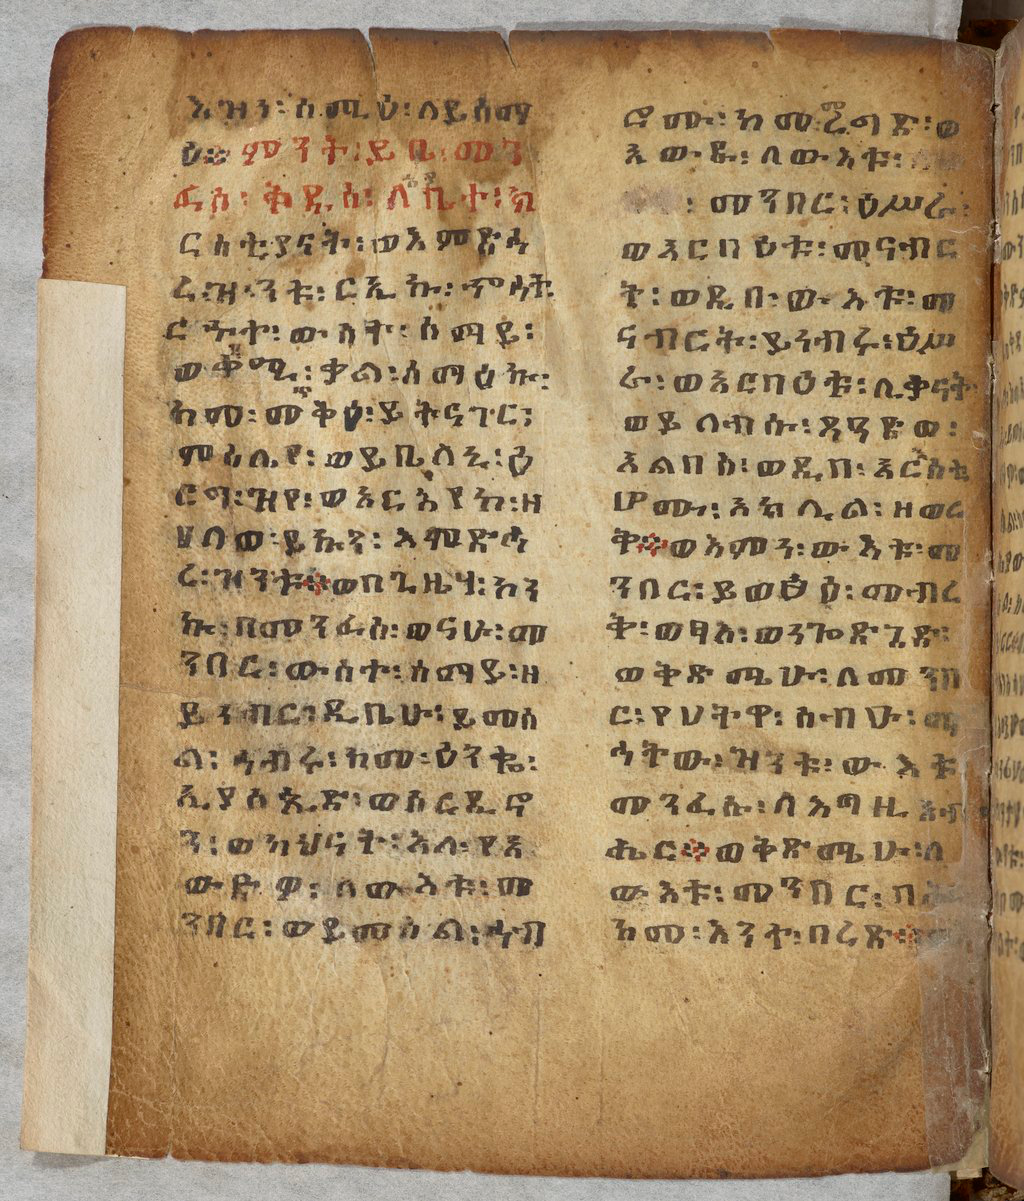 እዝን፡ ሰሚዕ፡ ለይስማ
ዕ። ምንት፡ ይቤ፡ መን
ፈስ፡ ቅዱስ፡ ለቤተ፡ ክ
ርስቲያናት፡ ወእምድኅ
ረ፡ ዝንቱ፡ ርኢኩ፡ ኆኅት፡
ርኅተ፡ ውስተ፡ ሰማይ፡
ወቀዳሚ፡ ቃል፡ ሰማዕኩ፡
ከመ፡ መጥቅዕ፡ ይትናገር፡
ምስሌየ፡ ወይቤለኒ፡ ዕ
ርግ፡ ዝየ፡ ወአርእየከ፡ ዘ
ሀለወ፡ ይኩን፡ እምድኅ
ረ፡ ዝንቱ። ወበጊዜሃ፡ አን
ኩ፡ በመንፈስ፡ ወናሁ፡ መ
ንበር፡ ውስተ፡ ሰማይ፡ ዘ
ይነብር፡ ዲቤሁ፡ ይመስ
ል፡ ኅብሩ፡ ከመ፡ ዕንቈ፡
ኢያሰጲድ፡ ወሰርዲኖ
ን፡ ወካህናት፡ እለ፡ የአ
ውድዎ፡ ለውእቱ፡ መ
ንበር፡ ወይመስል፡ ኅብ
ሮሙ፡ ከመ፡ ረግጽ፡ ወ
አውዱ፡ ለውእቱ፡
መንበር፡ ዕሥራ፡
ወአርበዕቱ፡ መናብር
ት፡ ወዲበ፡ ውእቱ፡ መ
ናብርት፡ ይነብሩ፡ ዕሥ
ራ፡ ወአርበዕቱ፡ ሊቃናት
ወይለብሱ፡ ጸዓድወ፡
አልበሰ፡ ወዲበ፡ አርእስቲ
ሆሙ፡ አክሊል፡ ዘወር
ቅ። ወእምነ፡ ውእቱ፡ መ
ንበር፡ ይወፅዕ፡ መብረ
ቅ፡ ወቃለ፡ ወነጐድጓድ፡
ወቅድሜሁ፡ ለመንበ
ር፡ የህትዋ፡ ሰብዑ፡ መኃ
ትው፡ ዝንቱ፡ ውእቱ
መንፈሱ፡ ለእግዚአብ
ሔር። ወቅድሜሁ፡ ለ
ውእቱ፡ መንበር፡
ከመ፡ እንተ፡ በረድ።